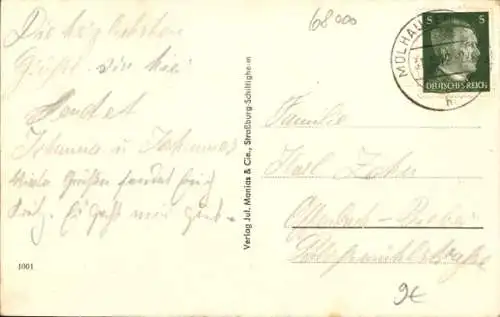 68000
Die herzlichsten
Grüße von hier
sendet
Johanna u. Johannes
Viele Grüße sendet
Fritz. Es geht mir gut.
1001
Verlag Jul. Manias & Cie., Straßburg-Schiltigheim
MÜLHAUSEN
5 5
DEUTSCHES REICH
Familie
Karl
Offenbach-
9€